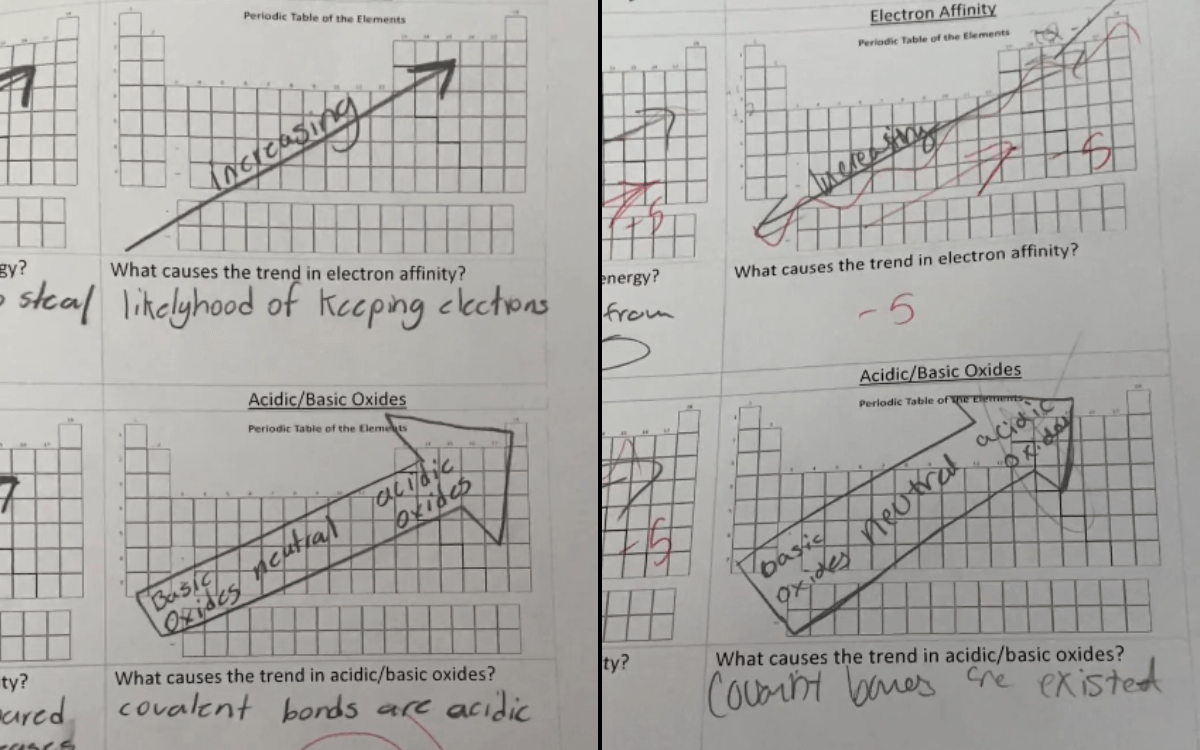 Periodic Table of the Elements
increasing
gy?
What causes the trend in electron affinity?
steal
likelyhood of keeping elections
Acidic/Basic Oxides
Periodic Table of the Elements
acidic
oxides
neutral
Basic
oxides
ty?
What causes the trend in acidic/basic oxides?
covalent bonds are acidic
Electron Affinity
Periodic Table of the Elements
Increasing
-5
-5
energy?
What causes the trend in electron affinity?
from
-5
Acidic/Basic Oxides
Periodic Table of the Elements
acidic
oxides
neutral
basic
oxides
-5
ty?
What causes the trend in acidic/basic oxides?
existed